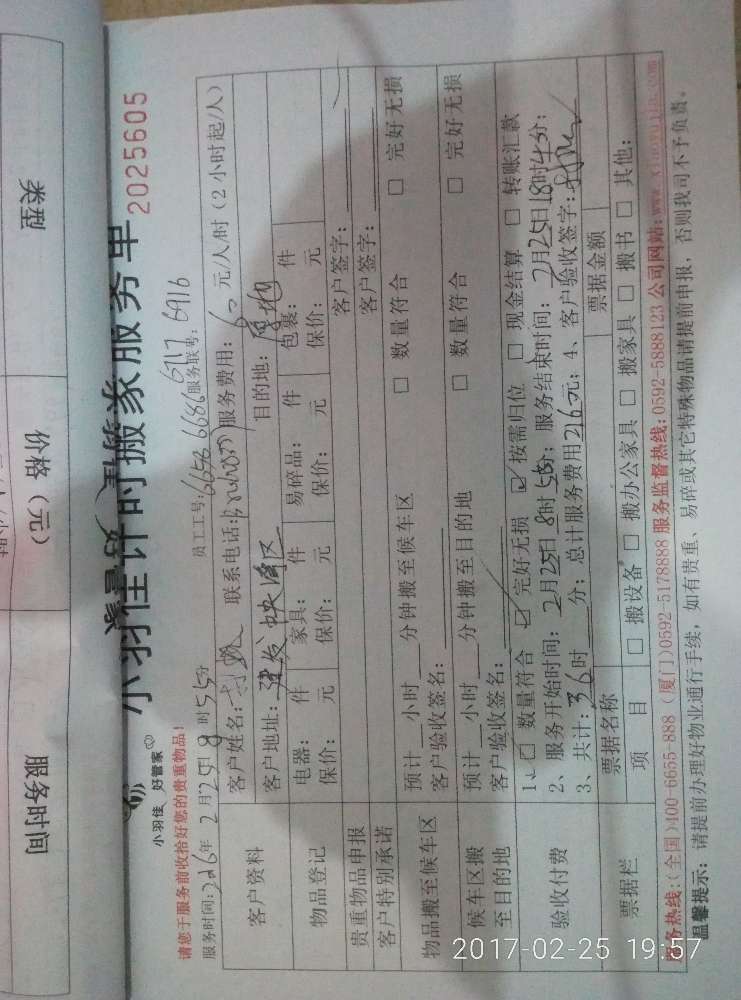 类型
价格（元）
服务时间
小羽佳计时搬家服务单
2025605
小羽佳 好管家
请您于服务前收拾好您的贵重物品！
服务时间: 2月25日8时55分 员工工号: 6656 6686 服务联号: 6117 6916
客户资料
客户姓名: 联系电话: 服务费用: 60元/人/时（2小时起/人）
客户地址: 建发 目的地:
物品登记
电器: 件 家具: 件 易碎品: 件 包裹: 件
保价: 元 保价: 元 保价: 元 保价: 元
贵重物品申报 客户签字:
客户特别承诺 客户签字:
物品搬至候车区
预计 小时 分钟搬至候车区 □ 数量符合 □ 完好无损
客户验收签名:
候车区搬至目的地
预计 小时 分钟搬至目的地 □ 数量符合 □ 完好无损
客户验收签名:
验收付费
1、☑ 数量符合 ☑ 完好无损 ☑ 按需归位 □ 现金结算 □ 转账汇款
2、服务开始时间: 2月25日8时55分; 服务结束时间: 2月25日18时45分;
3、共计: 36时 分; 总计服务费用216元; 4、客户验收签字:
票据栏
票据名称 票据金额
项目 □ 搬设备 □ 搬办公家具 □ 搬家具 □ 搬书 □ 其他:
服务热线:(全国)400-6655-888 (厦门)0592-5178888 服务监督热线:0592-5888123 公司网站:www.xiaoyujia.com
温馨提示: 请提前办理好物业通行手续, 如有贵重、易碎或其它特殊物品请提前申报, 否则我司不予负责。
2017-02-25 19:57